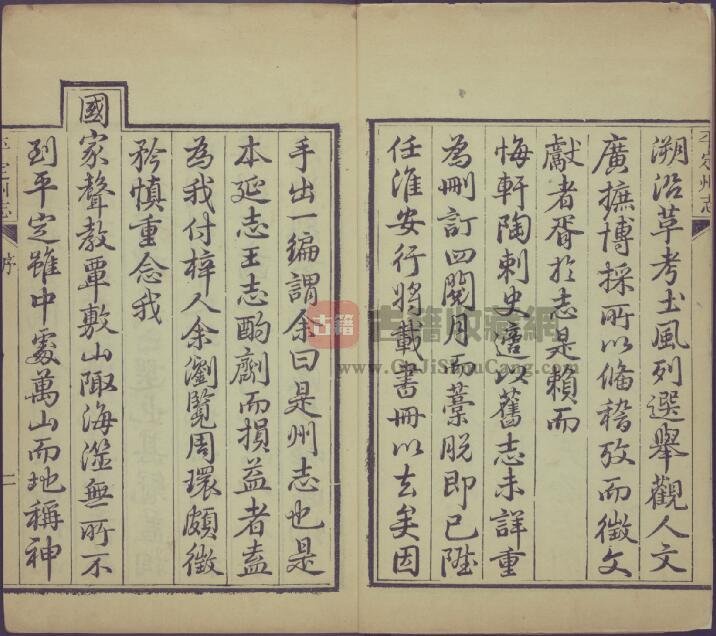 溯沿革考土風列選舉觀人文
廣摭博採所以備稽攷而徵文
獻者胥於志是賴而
悔軒陶刺史適以舊志未詳重
為刪訂四閱月而藁脫即已陞
任淮安行將載書冊以去矣因
手出一編謂余曰是州志也是
本延志王志酌劑而損益者盍
為我付梓人余瀏覽周環頗徵
矜慎重念我
國家聲教覃敷山陬海澨無所不
到平定雖中處萬山而地稱神
平定州志
平定州志
序
二
古籍
古籍收藏網
www.GuJiShouCang.com